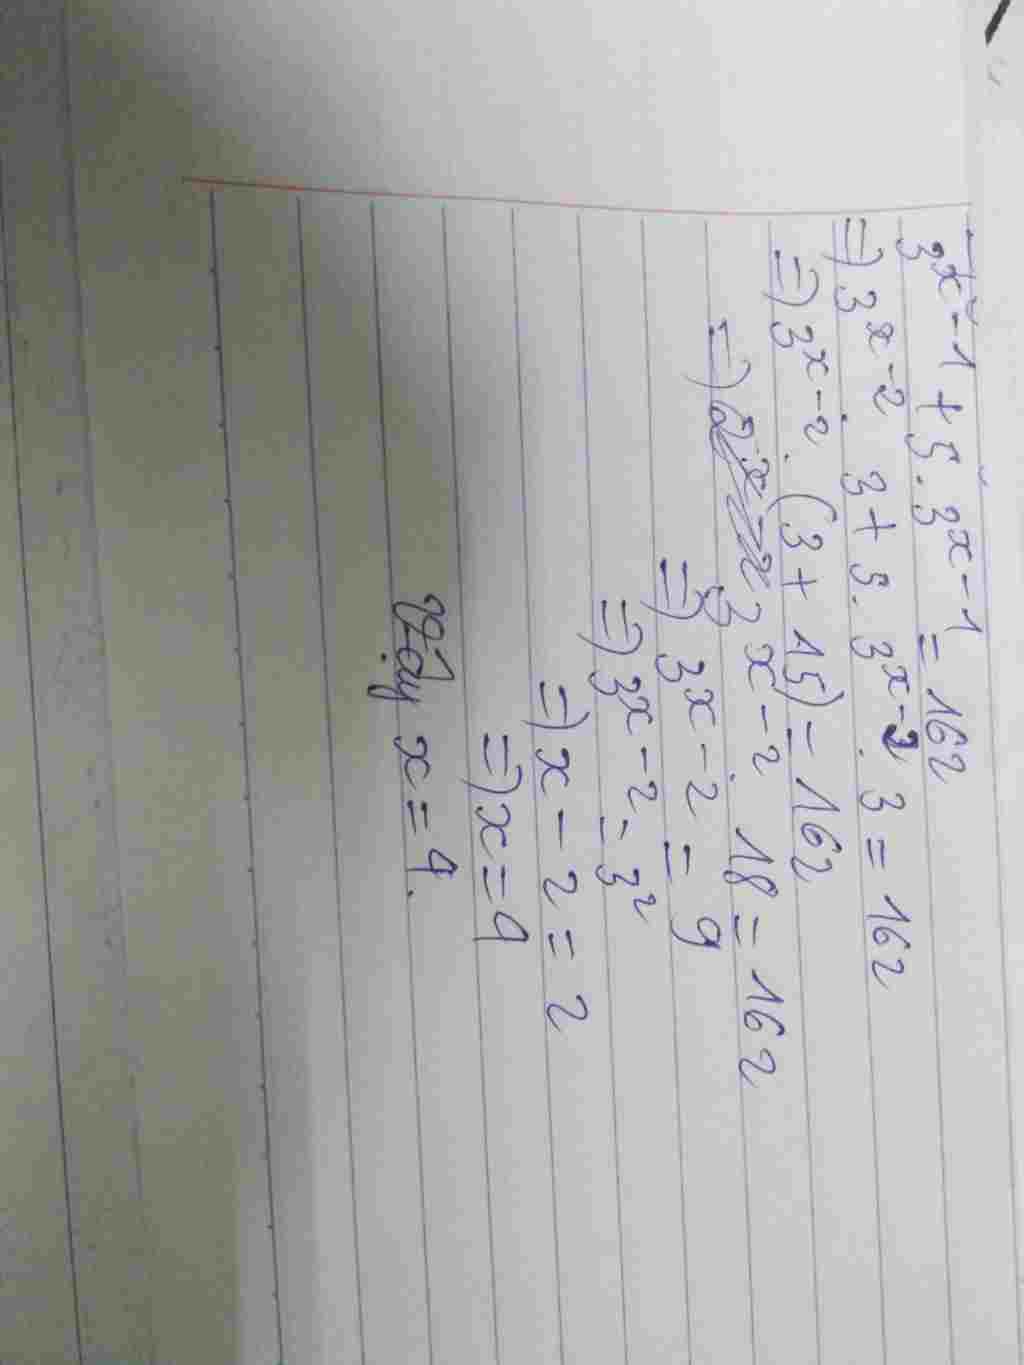 3^x-1 + 5.3^x-1 = 162
=) 3^x-2 . 3 + 5. 3^x-2 . 3 = 162
=) 3^x-2 . (3 + 15) = 162
=) 3^x-2 . 18 = 162
=) 3^x-2 = 9
=) 3^x-2 = 3^2
=) x - 2 = 2
=) x = 4
Vậy x = 4.